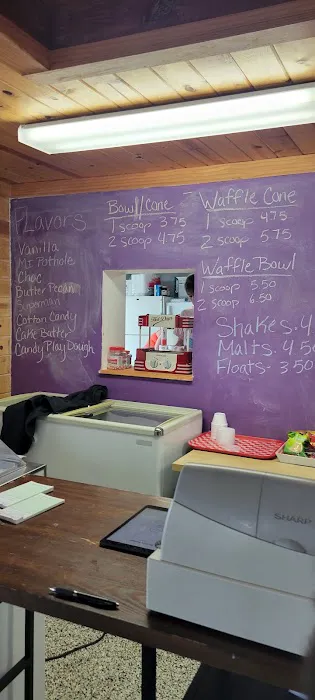 FLavors
Vanilla
MI Pothole
Choc
Butter Pecan
Superman
Cotton Candy
Cake Batter
Candy Play Dough
Bowl/Cone
1 scoop 3.75
2 scoop 4.75
Waffle Cone
1 scoop 4.75
2 scoop 5.75
Waffle Bowl
1 scoop 5.50
2 scoop 6.50
Shakes. 4
Malts. 4.50
Floats. 3.50
SHARP